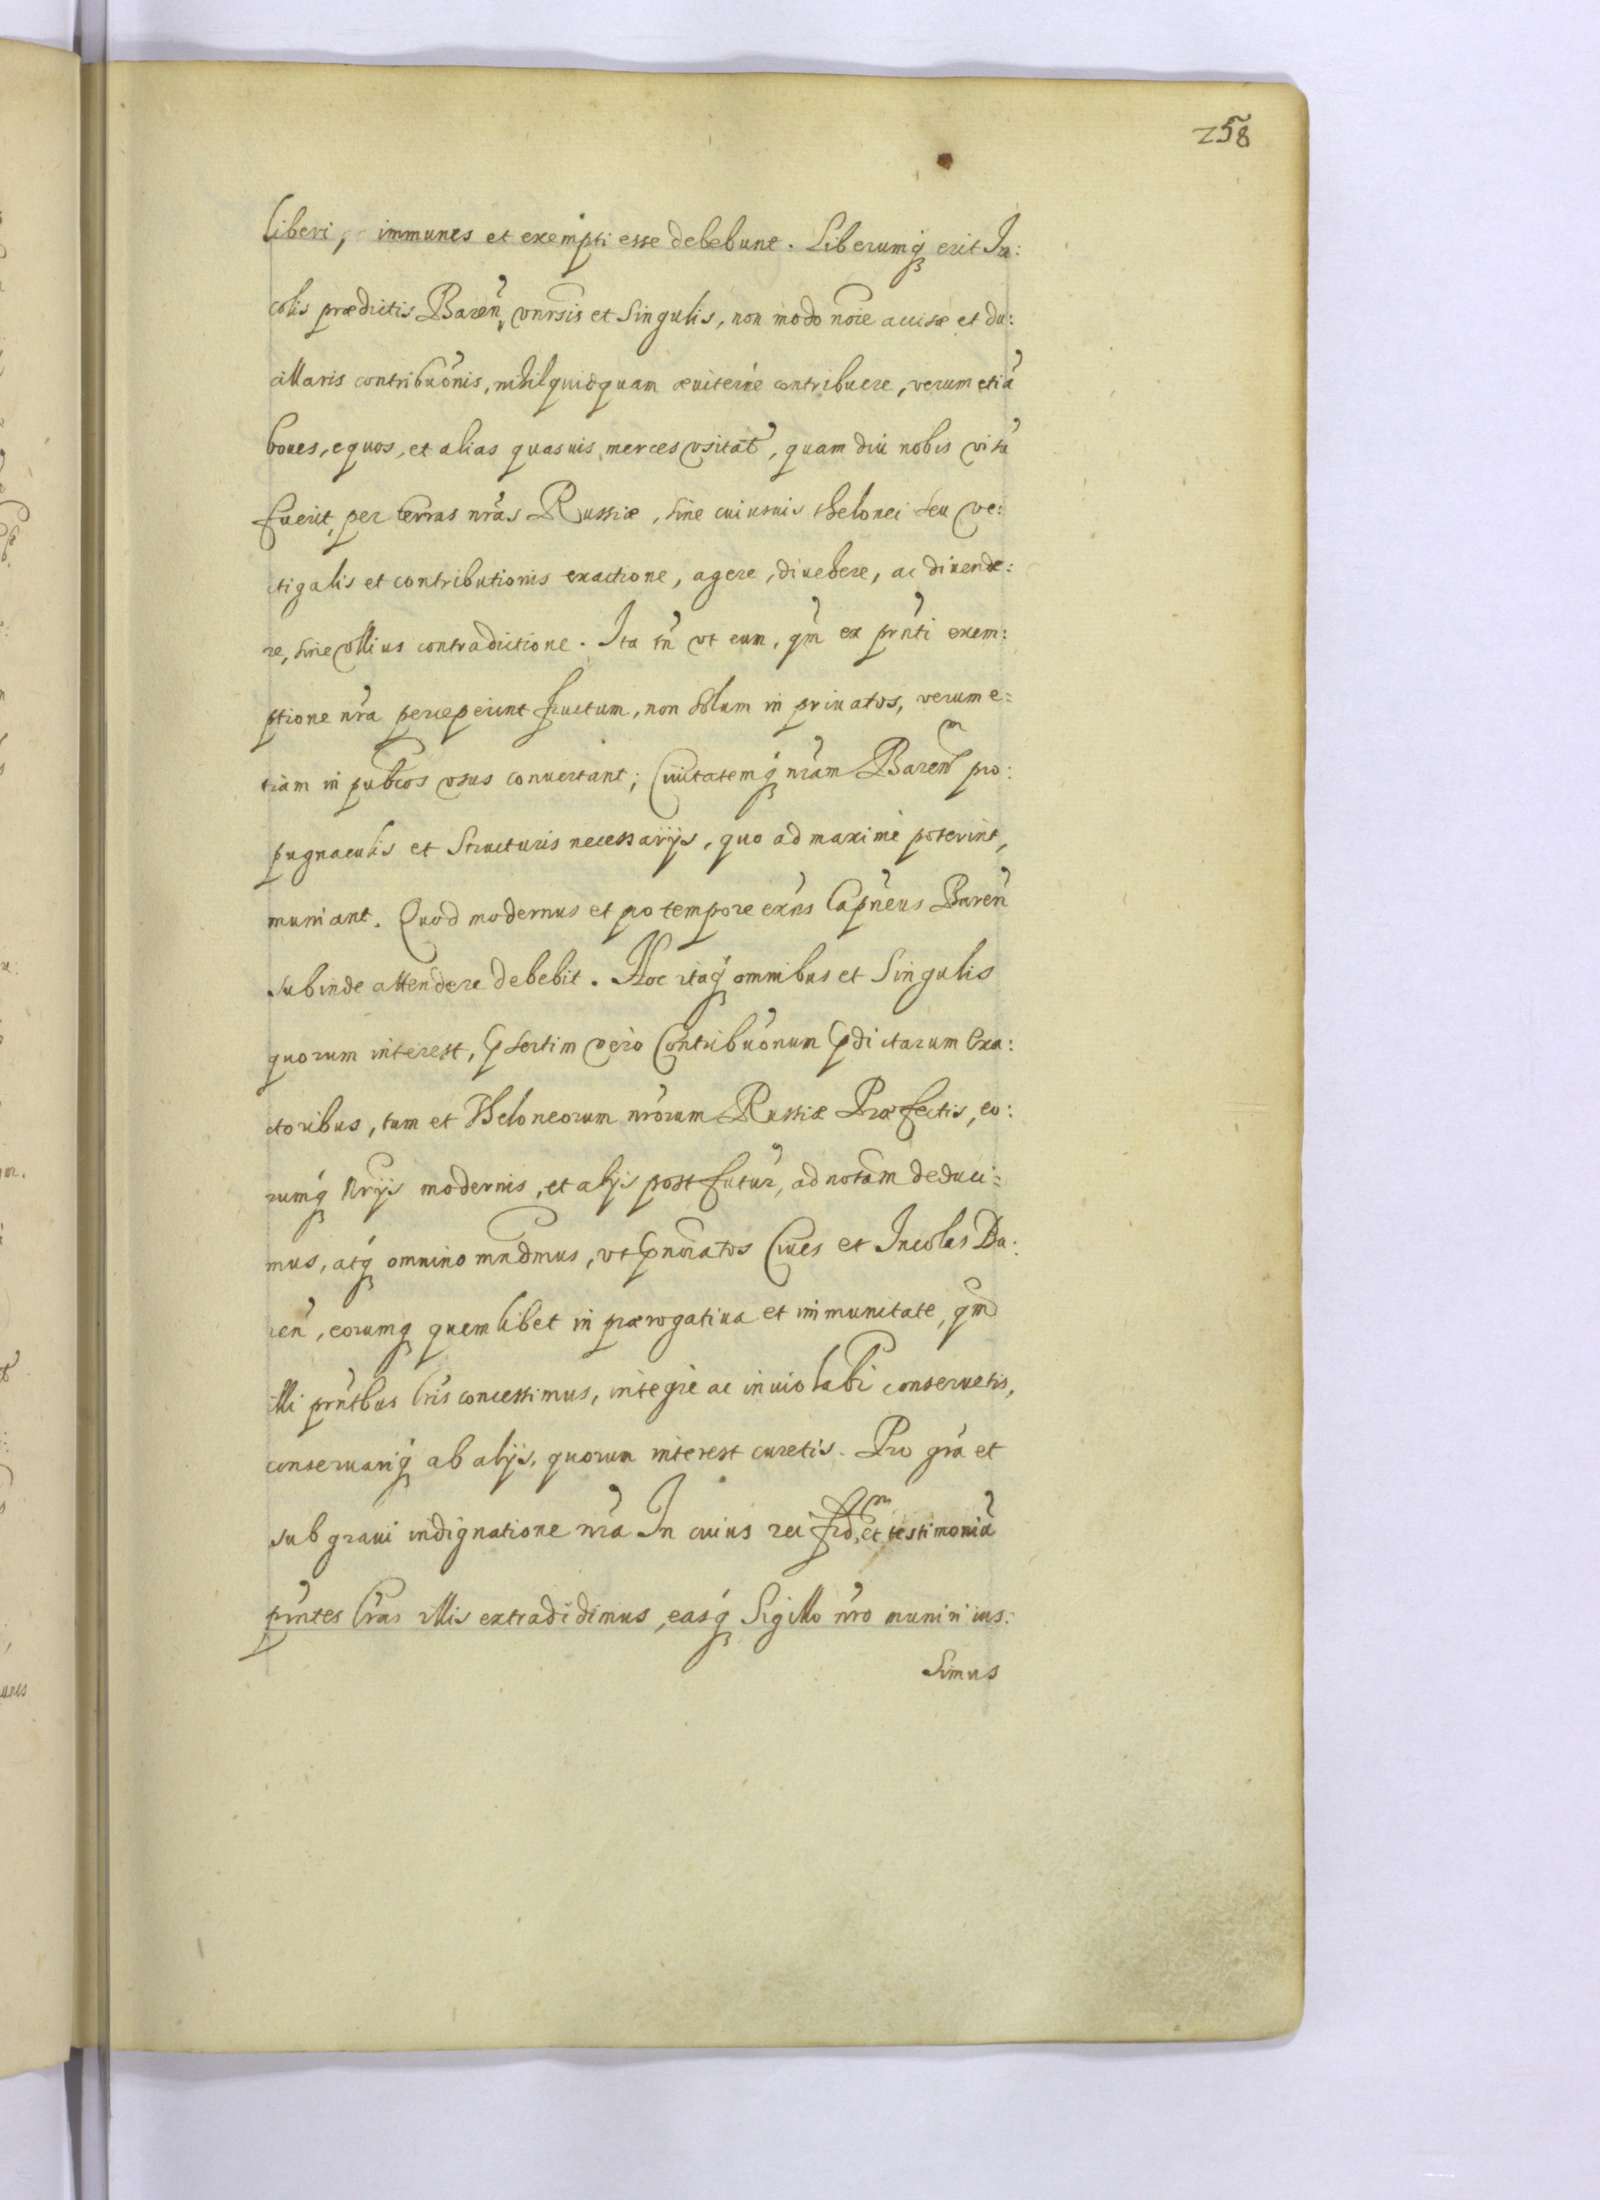 258
liberi, immunes et exempti esse debebunt. Liberumq erit In:
colis prædictis Baren, vnrsis et Singulis, non modo noie accisæ et du:
cillaris contribuonis, nihil quidquam æuiterne contribuere, verum etiā
boues, equos, et alias quasuis merces vsitat, quam diu nobis visū
fuerit, per terras nras Russiæ, sine cuiusuis thelonei seu ve:
ctigalis et contributionis exactione, agere, diuehere, ac diuende:
re, sine vllius contradictione. Ita tn vt eum, qm ex prnti exem:
ptione nra perceperint fructum, non solum in priuatos, verum e:
tiam in publcos vsus conuertant; Ciuitatemq nram Baren pro:
pugnaculis et Structuris necessarijs, quo ad maximè poterint,
muniant. Quod modernus et pro tempore exns Capneus Baren
subinde attendere debebit. Hoc itaq omnibus et Singulis
quorum interest, psertim vero Contribuonum pdictarum Exa:
ctoribus, tum et Theloneorum nrorum Russiæ Præfectis, eo:
rumq Nrijs modernis, et alijs post futur, ad notam deduci:
mus, atq omnino mndmus, vt pnoiatos Ciues et Incolas Ba:
ren, eorumq quemlibet in prærogatiua et immunitate, qm
illi prntbus lris concessimus, integrè ac inuiolabi conseruetis,
conseruariq ab alijs, quorum interest curetis. Pro gra et
sub graui indignatione nra In cuius rei fid, et testimoniū
prntes lras illis extradidimus, easq Sigillo nro muniri ius:
simus